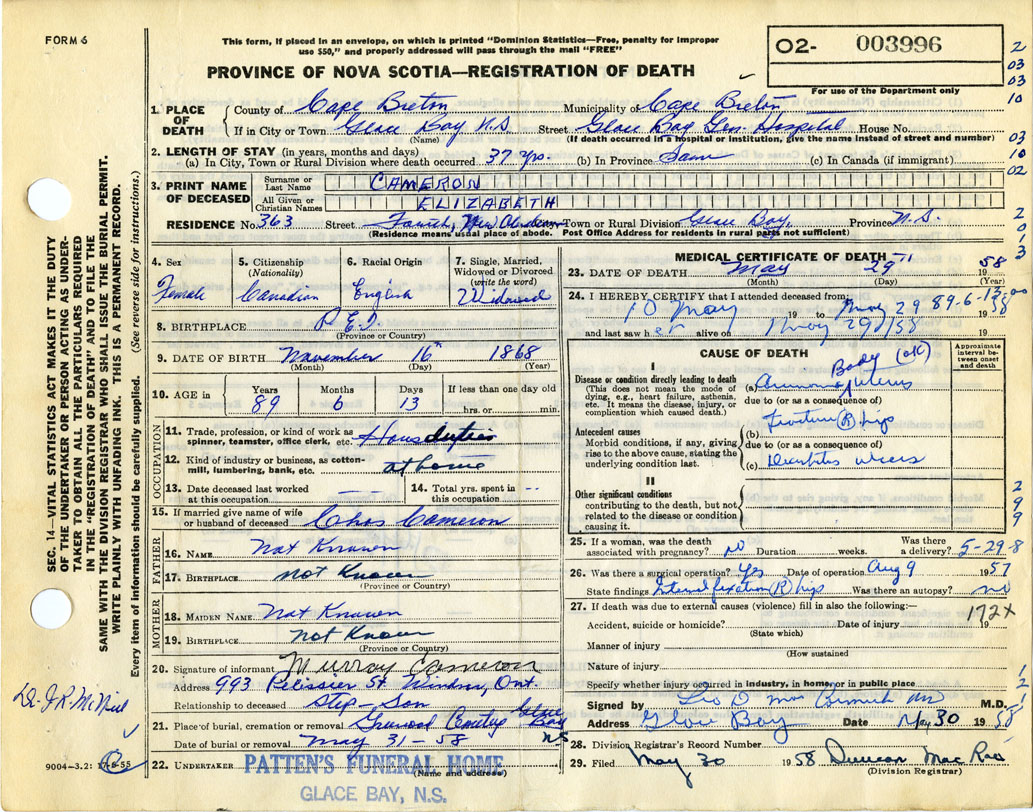 FORM 6
This form, if placed in an envelope, on which is printed "Dominion Statistics—Free, penalty for improper
use $50," and properly addressed will pass through the mail "FREE"
O2- 003996
PROVINCE OF NOVA SCOTIA—REGISTRATION OF DEATH
For use of the Department only
1. PLACE OF DEATH
County of Cape Breton Municipality of Cape Breton
If in City or Town Glace Bay N.S Street Glace Bay Gen. Hospital House No.
(Name) (If death occurred in a hospital or institution, give the name instead of street and number)
2. LENGTH OF STAY (in years, months and days)
(a) In City, Town or Rural Division where death occurred 37 yrs. (b) In Province Same (c) In Canada (if immigrant)
3. PRINT NAME OF DECEASED
Surname or Last Name CAMERON
All Given or Christian Names ELIZABETH
RESIDENCE No. 363 Street Fourth, New Town or Rural Division Glace Bay, Province N.S.
(Residence means usual place of abode. Post Office Address for residents in rural parts not sufficient)
4. Sex
Female
5. Citizenship
(Nationality)
Canadian
6. Racial Origin
English
7. Single, Married,
Widowed or Divorced
(write the word)
Widowed
8. BIRTHPLACE P.E.I
(Province or Country)
9. DATE OF BIRTH November 16th 1868
(Month) (Day) (Year)
10. AGE in
Years Months Days If less than one day old
89 6 13 hrs. or min.
OCCUPATION
11. Trade, profession, or kind of work as
spinner, teamster, office clerk, etc. House duties
12. Kind of industry or business, as cotton-
mill, lumbering, bank, etc. at home
13. Date deceased last worked
at this occupation —
14. Total yrs. spent in
this occupation --
15. If married give name of wife
or husband of deceased Chas Cameron
FATHER
16. NAME Not Known
17. BIRTHPLACE not Known
(Province or Country)
MOTHER
18. MAIDEN NAME Not Known
19. BIRTHPLACE not Known
(Province or Country)
20. Signature of informant Murray Cameron
Address 993 Pelissier St Windsor, Ont.
Relationship to deceased Step-Son
21. Place of burial, cremation or removal Greenwood Cemetery Glace Bay
Date of burial or removal May 31-58 NS
22. UNDERTAKER PATTEN'S FUNERAL HOME
(Name and address)
GLACE BAY, N.S.
MEDICAL CERTIFICATE OF DEATH
23. DATE OF DEATH May 29 1958
(Month) (Day) (Year)
24. I HEREBY CERTIFY that I attended deceased from:
10 May 19 to May 29 1958
89-6-13
and last saw her alive on May 29/58 19
CAUSE OF DEATH
Approximate
interval be-
tween onset
and death
I
Disease or condition directly leading to death
(This does not mean the mode of
dying, e.g., heart failure, asthenia,
etc. It means the disease, injury, or
complication which caused death.)
(a) Body (ok) uterus
due to (or as a consequence of)
Antecedent causes
Morbid conditions, if any, giving
rise to the above cause, stating the
underlying condition last.
(b) Fracture (R) hip
due to (or as a consequence of)
(c) Decubitus ulcers
II
Other significant conditions
contributing to the death, but not
related to the disease or condition
causing it.
25. If a woman, was the death
associated with pregnancy? no Duration weeks. Was there
a delivery? 5-29-8
26. Was there a surgical operation? Yes Date of operation Aug 9 1957
State findings Internal fixation (R) hip Was there an autopsy? no
27. If death was due to external causes (violence) fill in also the following:—
172x
Accident, suicide or homicide? Date of injury 19
(State which)
Manner of injury
(How sustained
Nature of injury
Specify whether injury occurred in industry, in home, or in public place
Signed by M.D.
Address Glace Bay Date May 30 1958
28. Division Registrar's Record Number
29. Filed May 30 1958 Duncan Mac Rae
(Division Registrar)
SEC. 14—VITAL STATISTICS ACT MAKES IT THE DUTY
OF THE UNDERTAKER OR PERSON ACTING AS UNDER-
TAKER TO OBTAIN ALL THE PARTICULARS REQUIRED
IN THE "REGISTRATION OF DEATH" AND TO FILE THE
SAME WITH THE DIVISION REGISTRAR WHO SHALL ISSUE THE BURIAL PERMIT.
WRITE PLAINLY WITH UNFADING INK. THIS IS A PERMANENT RECORD.
Every item of information should be carefully supplied. (See reverse side for instructions.)
Dr. J.R. McNeil
9004—3.2: 17-8-55